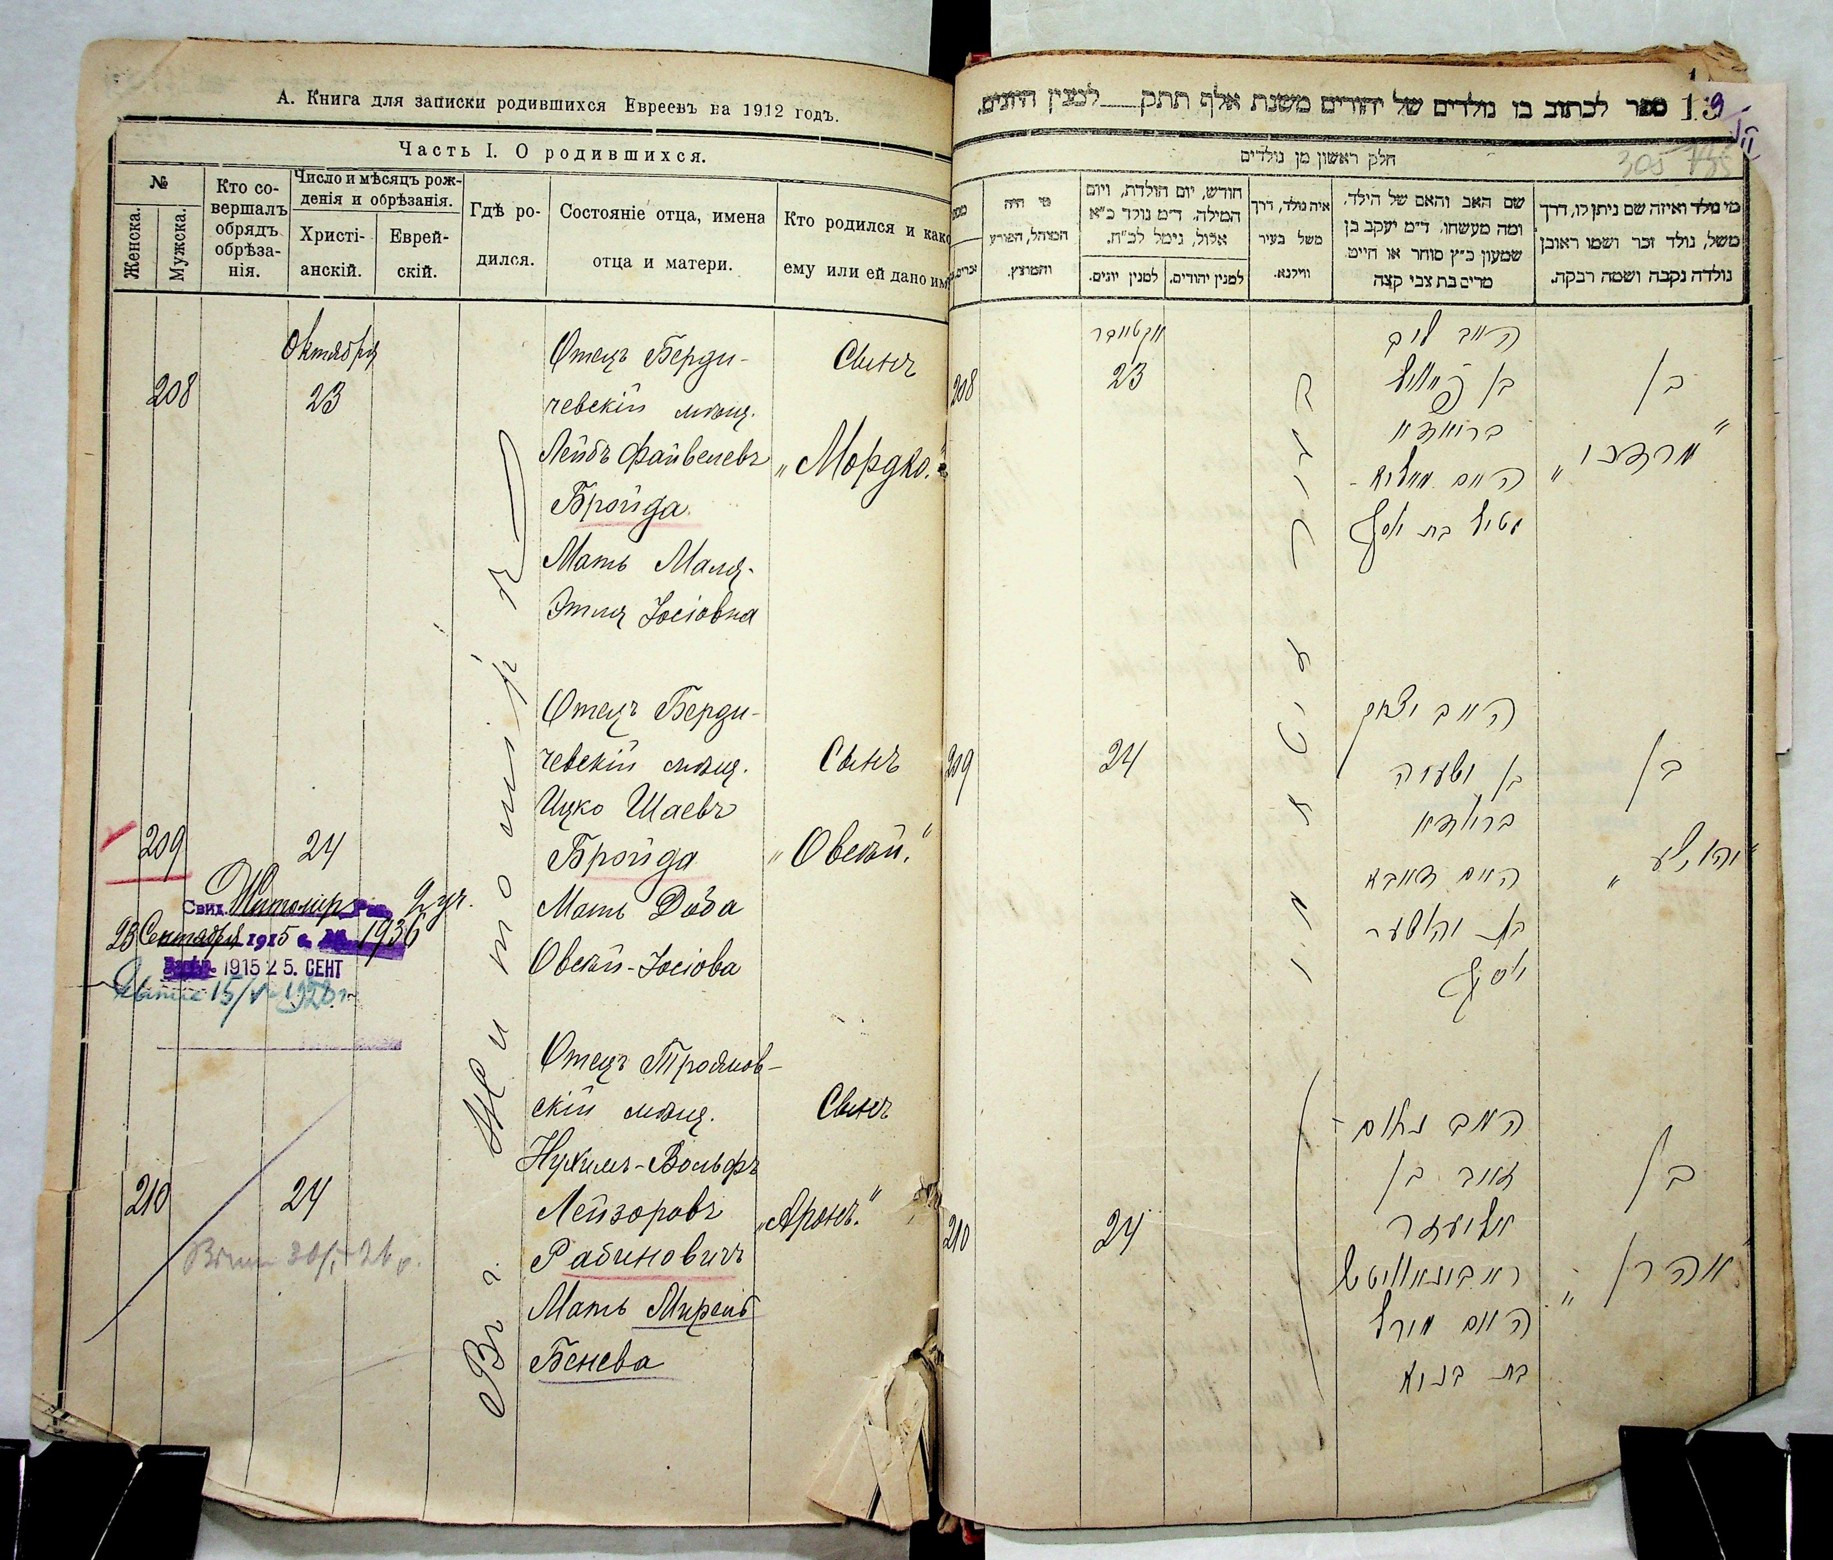 А. Книга для записки родившихся Евреевъ на 1912 годъ.
Часть I. О родившихся.
№
Женска.
Мужска.
Кто со-
вершалъ
обрядъ
обрѣза-
нія.
Число и мѣсяцъ рож-
денія и обрѣзанія.
Христі-
анскій.
Еврей-
скій.
Гдѣ ро-
дился.
Состояніе отца, имена
отца и матери.
Кто родился и како
ему или ей дано им
208
Октября
23
Отецъ Берди-
чевскій мѣщ.
Лейбъ Файвелевъ
Бройда
Мать Маля-
Этля Іосіовна
Сынъ
„Мордко."
209
24
Отецъ Берди-
чевскій мѣщ.
Ицко Шаевъ
Бройда
Мать Доба
Овсѣй-Іосіова
Сынъ
„Овсѣй."
Свид. Житомир. Рав. 2 уч.
23 Сентября 1915 г. № 1936
1915 25. СЕНТ
210
24
Отецъ Трояновъ-
скій мѣщ.
Нухимъ-Вольфъ
Лейзоровъ
Рабиновичъ
Мать Мирель
Бенева
Сынъ
„Аронъ."
Въ г. Житомірѣ
ספר לכתוב בו נולדים של יהודים משנת אלף תתק לנצין היונים.
305
חלק ראשון מן נולדים
מי היה
המוהל, הפורע
והמוצץ.
חודש, יום הולדת, ויום
המילה. ד״מ נולד כ״א
אלול, נימל לכ״ח.
למנין יונים.
למנין יהודים.
איה נולד, דרך
משל בעיר
ווילנא.
שם האב והאם של הילד,
ומה מעשהו. ד״מ יעקב בן
שמעון כ״ץ סוחר או חייט
מרים בת צבי קצה
מי נולד ואיזה שם ניתן לו, דרך
משל, נולד זכר ושמו ראובן
נולדה נקבה ושמה רבקה.
208
אקטאבר
23
האב ליב
בן פייוויל
ברוידא
האם מאליא-
עטיל בת יוסף
בן
„מרדכי"
209
24
האב יצחק
בן ישעיה
ברוידא
האם דאבא
בת יהושע
יוסף
בן
„יהושע"
210
24
האב נחום-
זאב בן
אליעזר
ראבינאוויטש
האם מירל
בת בניא
בן
„אהרן"